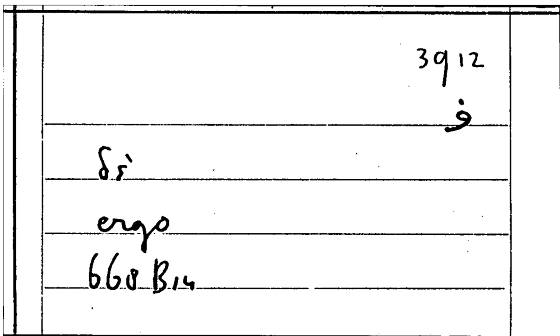 3912
ف
δὲ
ergo
668 B14